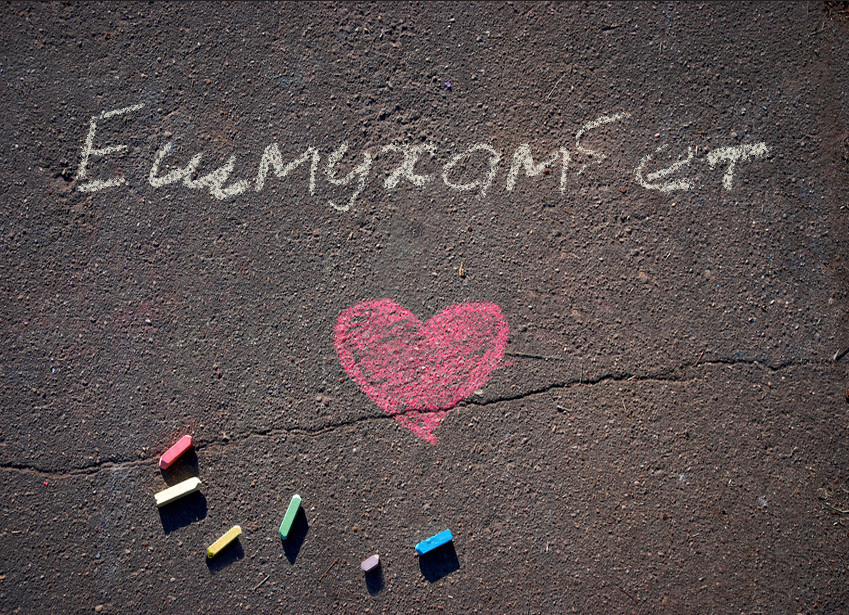 Ешмухамбет